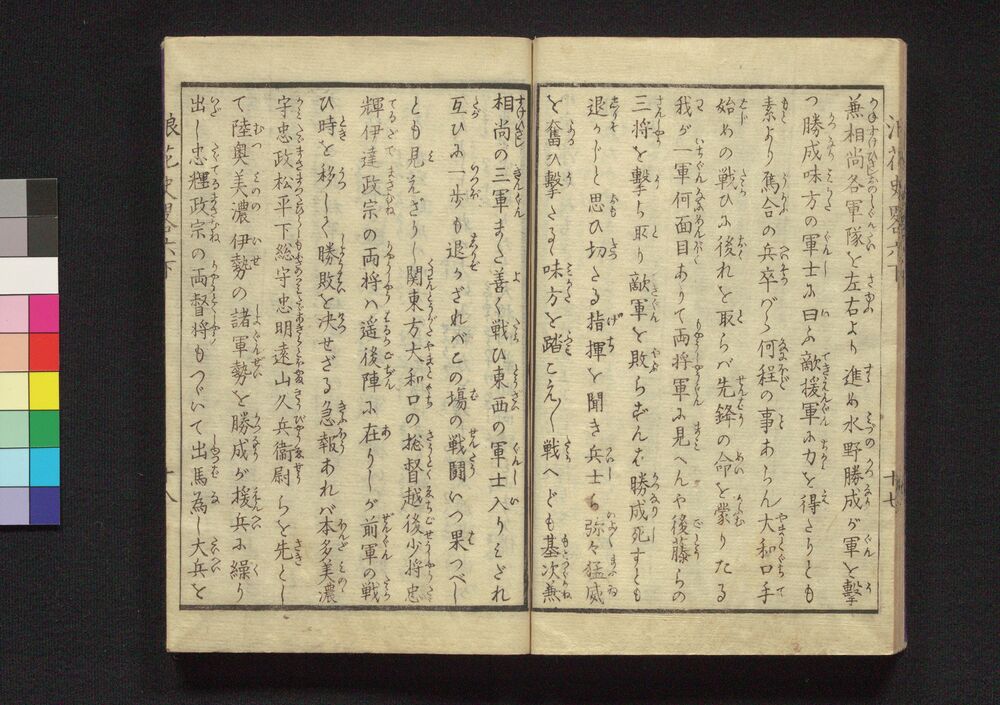 浪花史畧六下　十七
兼相尚各軍隊を左右より進め水野勝成が軍を撃
つ勝成味方の軍士に曰ふ敵援軍に力を得たりとも
素より烏合の兵卒がら何程の事あらん大和口手
始めの戦ひに後れを取らバ先鋒の命を蒙りたる
我が一軍何面目ありて両将軍に見へんや後藤らの
三将を撃ち取り敵軍を敗らずんば勝成死すとも
退かじと思ひ切たる指揮を聞き兵士ら弥々猛威
を奮ひ撃たるし味方を踏こえ〳〵戦へども基次兼
相尚の三軍また善く戦ひ東西の軍士入りみだれ
互ひに一歩も退かざれバこの場の戦闘いつ果つべし
とも見えざりし関東方大和口の総督越後少将忠
輝伊達政宗の両将ハ遥後陣に在りしが前軍の戦
ひ時を移しく勝敗を決せざる急報あれバ本多美濃
守忠政松平下総守忠明遠山久兵衛尉らを先とし
て陸奥美濃伊勢の諸軍勢を勝成が援兵に繰り
出し忠輝政宗の両督将もつゞいて出馬為し大兵を
浪花史畧六下　十八